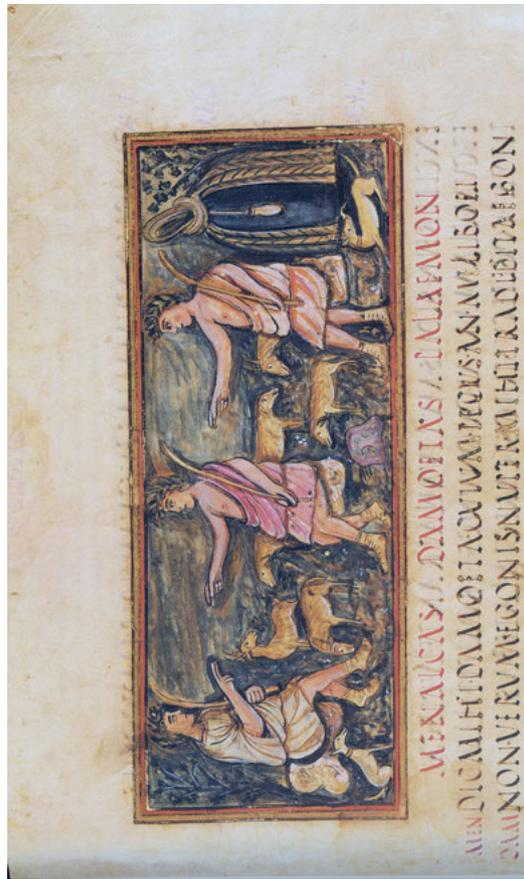 MENALCAS DAMOETAS PALAEMON
MEN DIC MIHI DAMOETA CUIUM PECUS AN MELIBOEI
DAM NON VERUM AEGONIS NUPER MIHI TRADIDIT AEGON